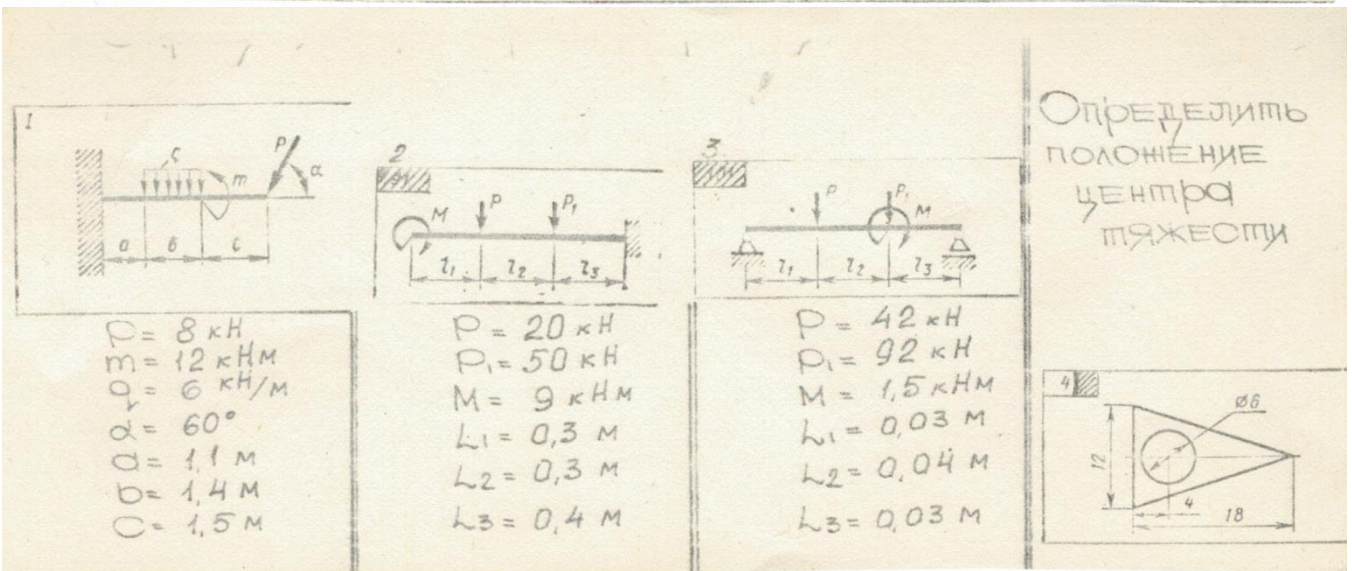 I
q
P
m
α
a
в
c
P = 8 кН
m = 12 кНм
q = 6 кН/м
α = 60°
a = 1,1 м
b = 1,4 м
C = 1,5 м
2
M
P
P₁
l₁
l₂
l₃
P = 20 кН
P₁ = 50 кН
M = 9 кНм
L₁ = 0,3 м
L₂ = 0,3 м
L₃ = 0,4 м
3
P
P₁
M
l₁
l₂
l₃
P = 42 кН
P₁ = 92 кН
M = 1,5 кНм
L₁ = 0,03 м
L₂ = 0,04 м
L₃ = 0,03 м
Определить
положение
центра
тяжести
4
ø6
12
4
18